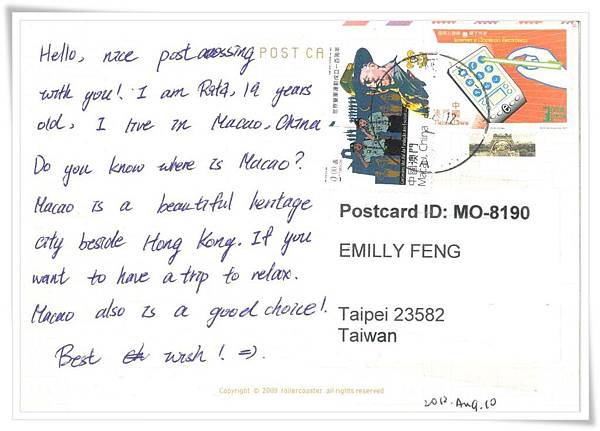 Hello, nice postcrossing
with you! I am Rita, 19 years
old, I live in Macao, China
Do you know where is Macao?
Macao is a beautiful heritage
city beside Hong Kong. If you
want to have a trip to relax.
Macao also is a good choice!
Best wish! =).
POST CA
中國澳門
Macau, China
Postcard ID: MO-8190
EMILLY FENG
Taipei 23582
Taiwan
Copyright © 2009 rollercoaster. all rights reserved
2012. Aug. 10